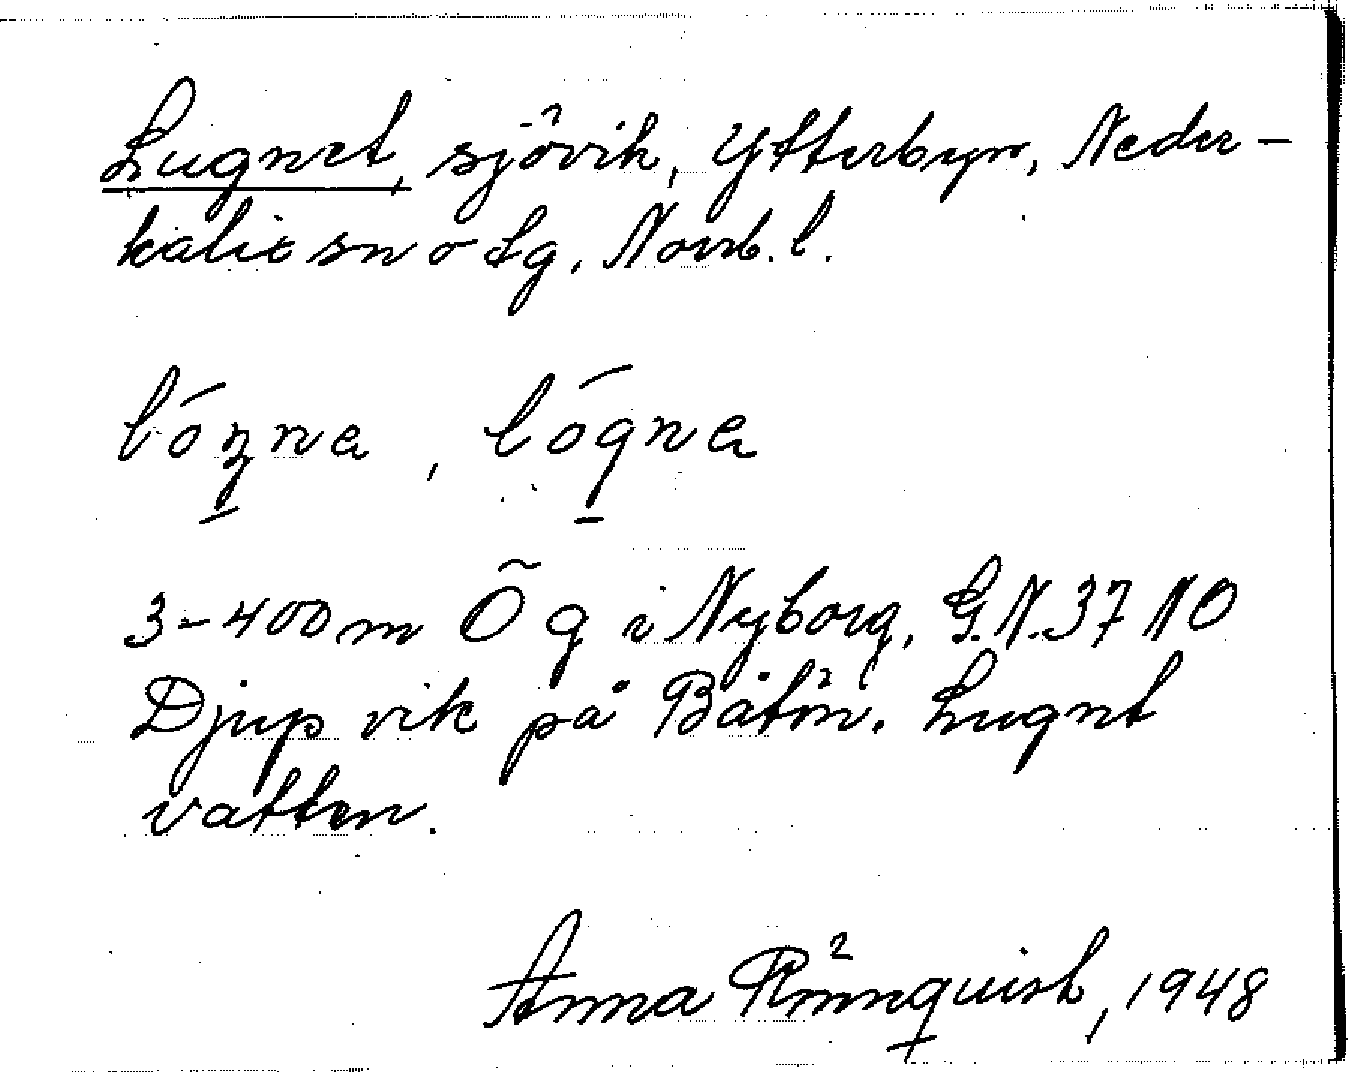 Lugnet, sjövik, Ytterbyn, Neder-
kalix sn o lg, Norrb. l.
lóŋne, lógne
3-400 m Ö g i Nyborg, G.N. 37 NO
Djup vik på Båtön. Lugnt
vatten.
Anna Rönnquist, 1948